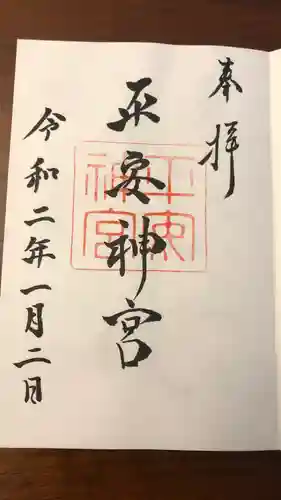 奉拝
平安神宮
平安神宮
令和二年一月二日